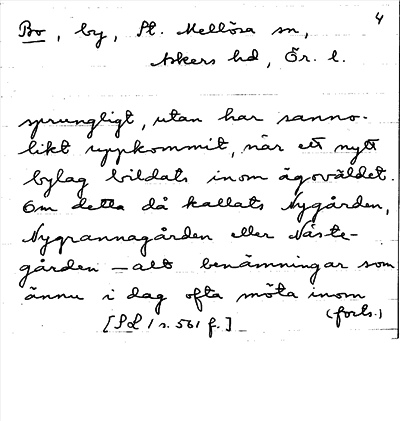 4
Bo, by, St. Mellösa sn,
Askers hd, Ör. l.
sprungligt, utan har sanno-
likt uppkommit, när ett nytt
bylag bildats inom ägovåldet.
Om detta då kallats Nygården,
Nygrannagården eller Näste-
gården – allt benämningar som
ännu i dag ofta möta inom
(forts.)
[SL 1 s. 561 f.]